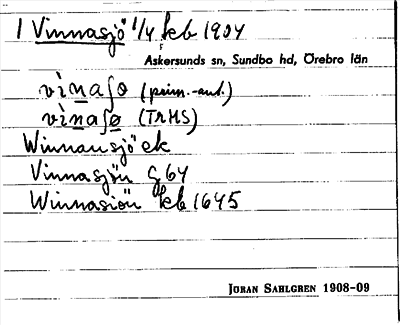 1 Vinnasjö 1/4 kb 1904
Askersunds sn, Sundbo hd, Örebro län
vìnaʃo (prim.-ant.)
vìnaʃø (TrHS)
Winnansjö ek
Vinnasjön G 64
Winnasiön kb 1645
JÖRAN SAHLGREN 1908-09